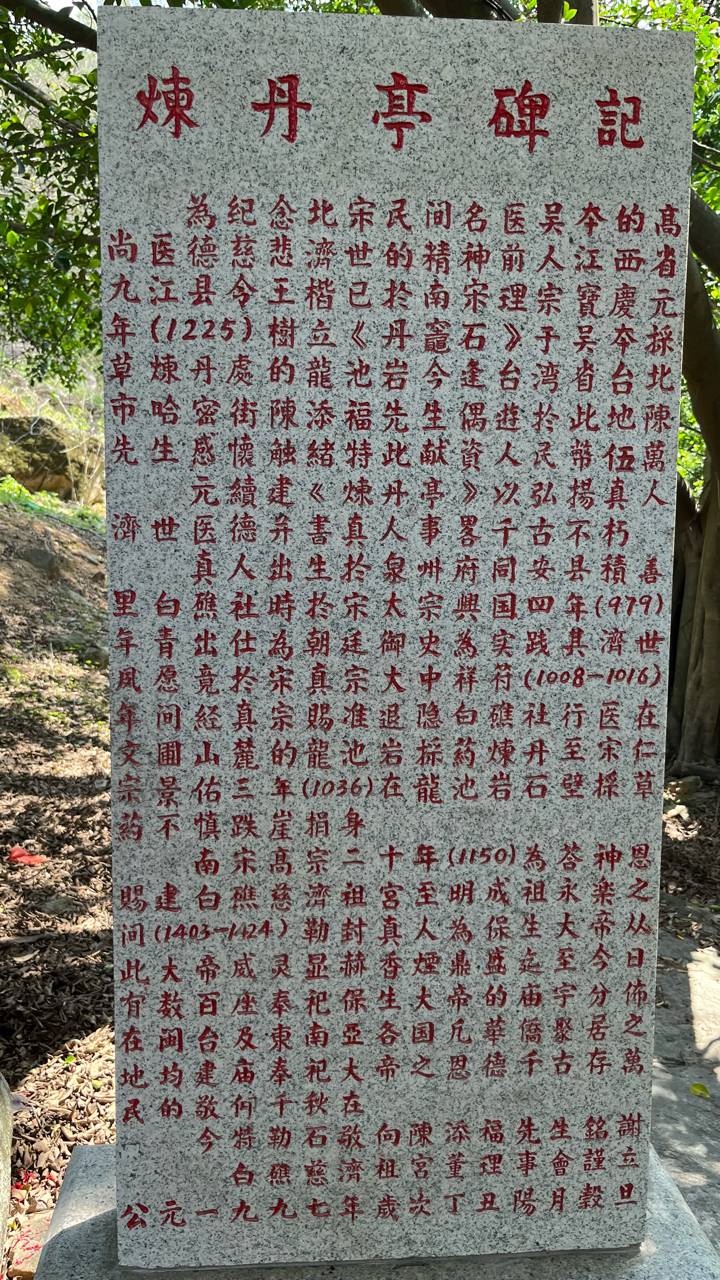 煉丹亭碑記
為纪念北宋民间名医吴夲的高
尚医德慈悲濟世的精神前人江西省
九江县令王楷已於南宋理宗寶慶元
年(1225)樹立《丹竈石》于吴夲採
草煉丹處的龍池岩今逢台湾省台北
市哈密街陳添福先生偶遊於此地陳
先生感懷触緒特此献資人民幣伍萬
元續建《煉丹亭》以弘揚真人
濟世医德并書真人事畧千古不朽
真人出生於泉州府同安县積善
里白礁社時為宋太宗興国四年(979)
年青出仕於朝廷御史為实践其濟世
風愿竟於宋真宗大中祥符(1008-1016)
年间經真宗賜准退隐白礁社行医在
文圃山麓的龍池岩採葯煉丹至宋仁
宗景佑三年(1036)在龍池岩石壁採草
葯不慎跌崖捐身
南宋高宗二十年(1150)為荅神恩
賜建白礁慈濟祖宮至明成祖永樂之
间(1403-1424)勒封真人為保生大帝从
此大帝威灵显赫香煙鼎盛迄至今日
有数百座奉祀保生大帝的庙宇分佈
在闽台及東南亚各国凡華僑聚居之
地均建庙奉祀大帝之恩德千古存萬
民的敬仰千秋在
今特勒石敬向陳添福先生銘謝
白礁慈濟祖宮董理事會謹立
公元一九九七年歲次丁丑陽月榖旦